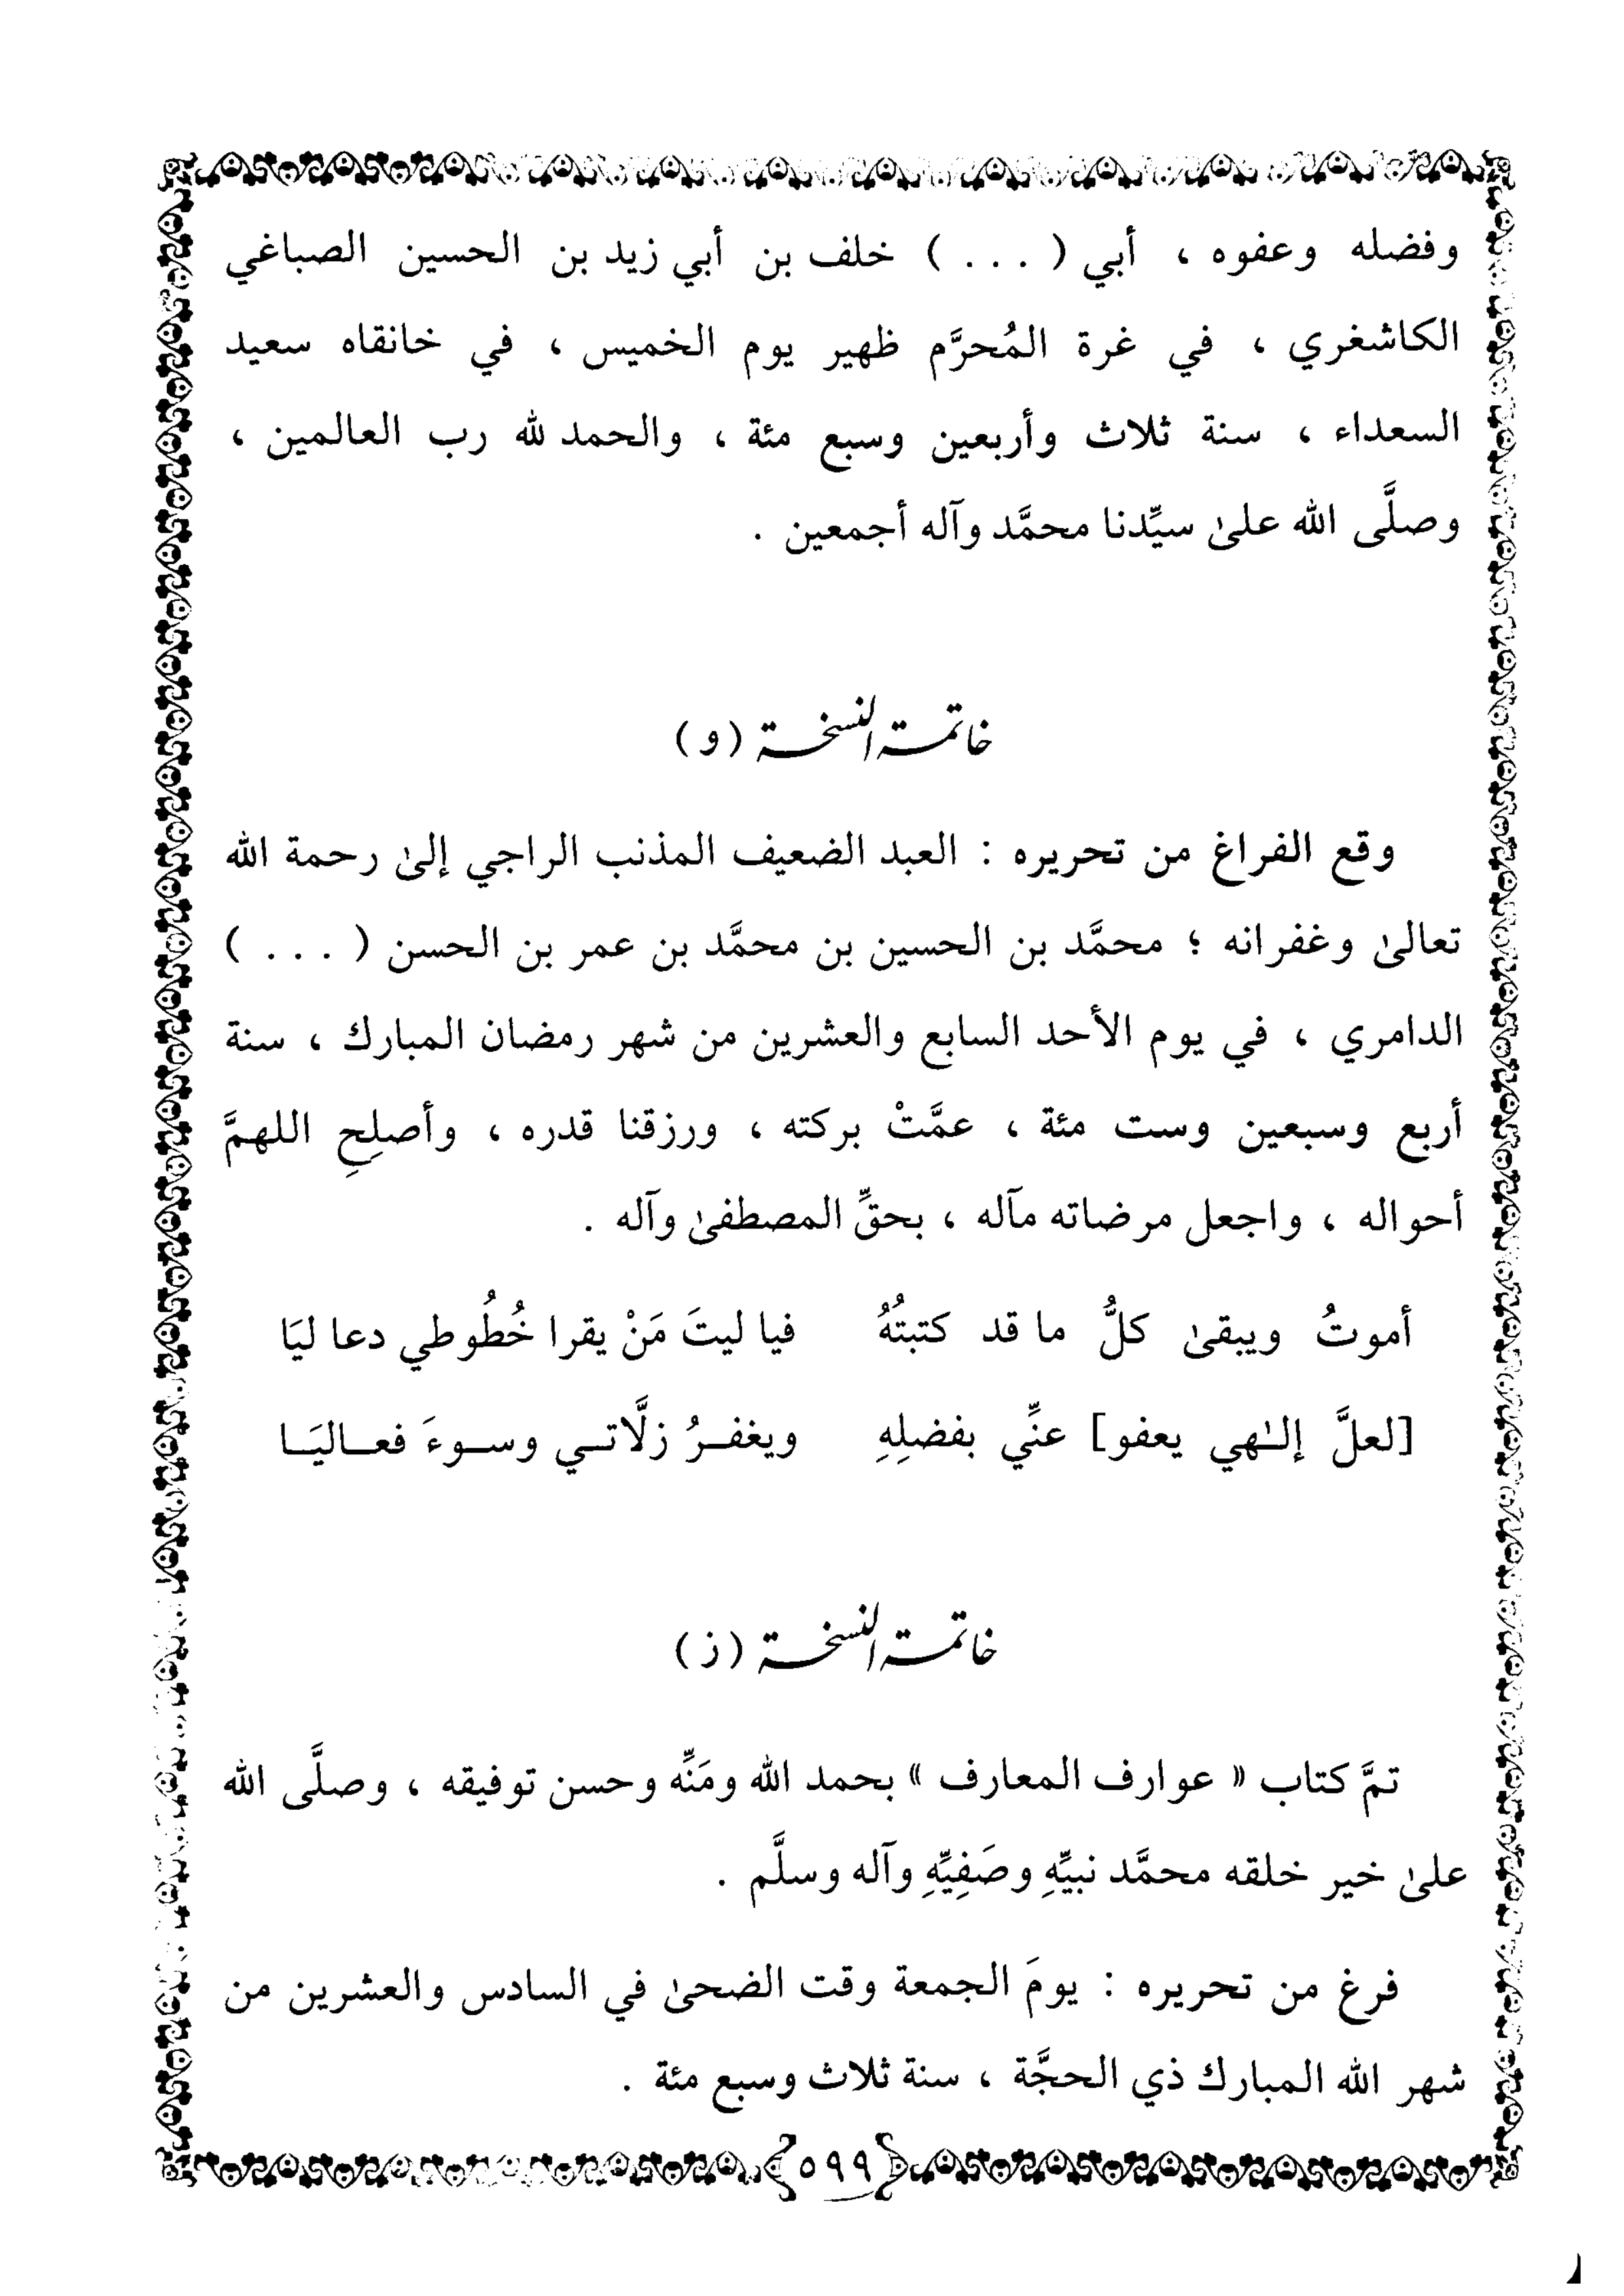 وفضله وعفوه ، أبي ( . . . ) خلف بن أبي زيد بن الحسين الصباغي
الكاشغري ، في غرة المُحرَّم ظهير يوم الخميس ، في خانقاه سعيد
السعداء ، سنة ثلاث وأربعين وسبع مئة ، والحمد لله رب العالمين ،
وصلَّى الله علىٰ سيِّدنا محمَّد وآله أجمعين .
خاتمة النسخة (و)
وقع الفراغ من تحريره : العبد الضعيف المذنب الراجي إلىٰ رحمة الله
تعالىٰ وغفرانه ؛ محمَّد بن الحسين بن محمَّد بن عمر بن الحسن ( . . . )
الدامري ، في يوم الأحد السابع والعشرين من شهر رمضان المبارك ، سنة
أربع وسبعين وست مئة ، عمَّتْ بركته ، ورزقنا قدره ، وأصلِحِ اللهمَّ
أحواله ، واجعل مرضاته مآله ، بحقِّ المصطفىٰ وآله .
أموتُ ويبقىٰ كلُّ ما قد كتبتُهُ فيا ليتَ مَنْ يقرا خُطُوطي دعا ليَا
[لعلَّ إلـٰهي يعفو] عنِّي بفضلِهِ ويغفـرُ زلَّاتـي وسـوءَ فعـاليَـا
خاتمة النسخة (ز)
تمَّ كتاب « عوارف المعارف » بحمد الله ومَنِّه وحسن توفيقه ، وصلَّى الله
علىٰ خير خلقه محمَّد نبيِّهِ وصَفِيِّهِ وآله وسلَّم .
فرغ من تحريره : يومَ الجمعة وقت الضحىٰ في السادس والعشرين من
شهر الله المبارك ذي الحجَّة ، سنة ثلاث وسبع مئة .
٥٩٩